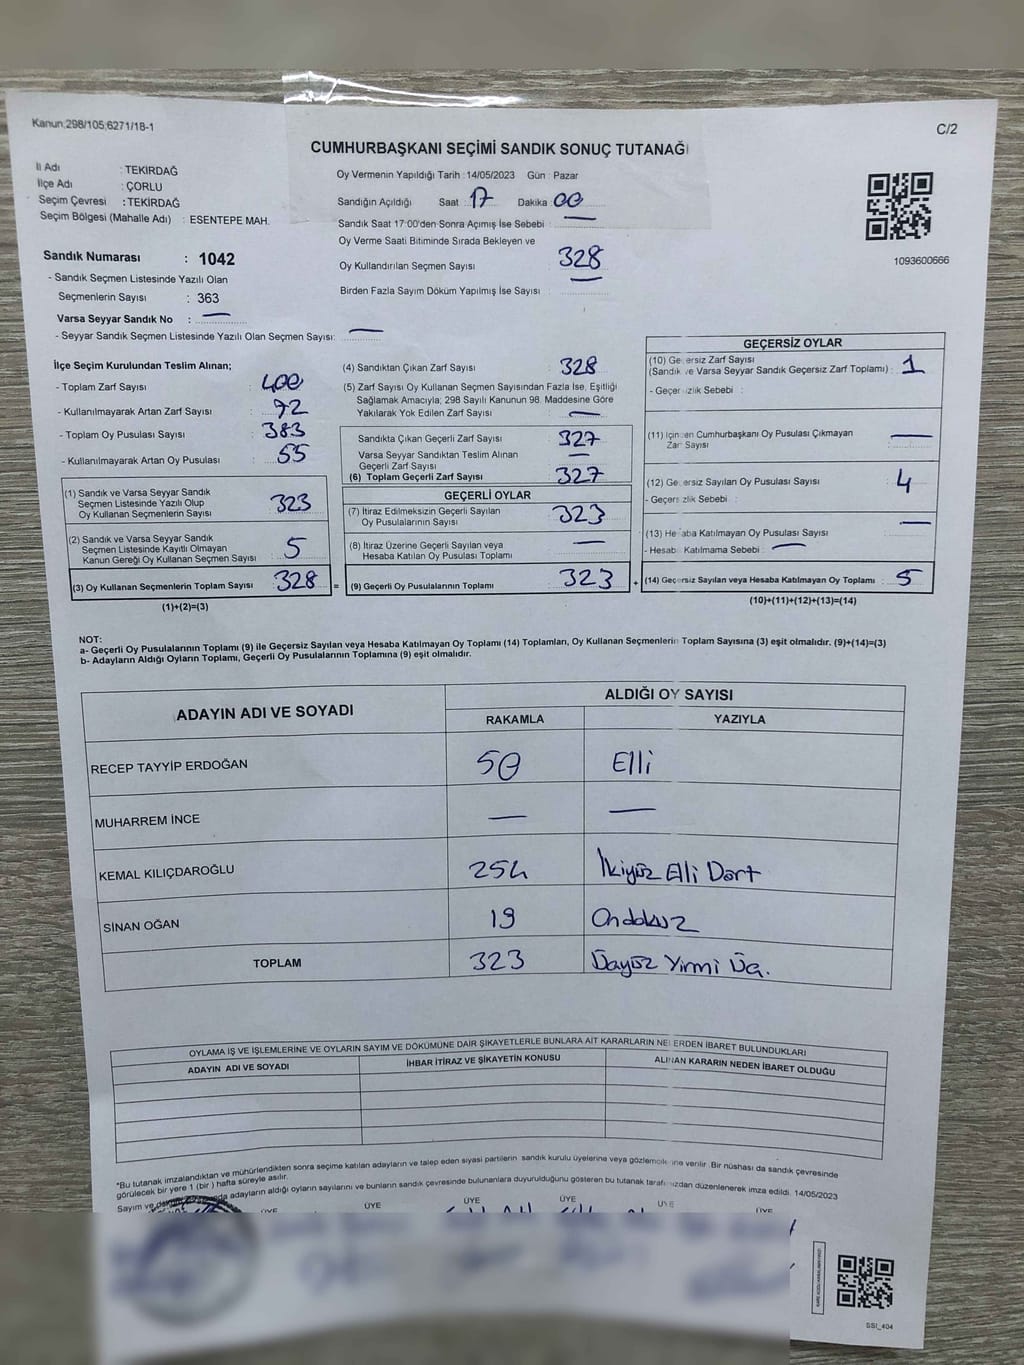 Kanun:298/105;6271/18-1
C/2
CUMHURBAŞKANI SEÇİMİ SANDIK SONUÇ TUTANAĞI
İl Adı : TEKİRDAĞ
İlçe Adı : ÇORLU
Seçim Çevresi : TEKİRDAĞ
Seçim Bölgesi (Mahalle Adı) : ESENTEPE MAH.
Oy Vermenin Yapıldığı Tarih : 14/05/2023 Gün : Pazar
Sandığın Açıldığı Saat 17 Dakika 00
Sandık Saat 17:00'den Sonra Açımış İse Sebebi :
Oy Verme Saati Bitiminde Sırada Bekleyen ve
Oy Kullandırılan Seçmen Sayısı 328
Birden Fazla Sayım Döküm Yapılmış İse Sayısı :
1093600666
Sandık Numarası : 1042
- Sandık Seçmen Listesinde Yazılı Olan
Seçmenlerin Sayısı : 363
Varsa Seyyar Sandık No : —
- Seyyar Sandık Seçmen Listesinde Yazılı Olan Seçmen Sayısı: —
İlçe Seçim Kurulundan Teslim Alınan;
- Toplam Zarf Sayısı : 400
- Kullanılmayarak Artan Zarf Sayısı : 72
- Toplam Oy Pusulası Sayısı : 383
- Kullanılmayarak Artan Oy Pusulası : 55
(1) Sandık ve Varsa Seyyar Sandık
Seçmen Listesinde Yazılı Olup
Oy Kullanan Seçmenlerin Sayısı 323
(2) Sandık ve Varsa Seyyar Sandık
Seçmen Listesinde Kayıtlı Olmayan
Kanun Gereği Oy Kullanan Seçmen Sayısı 5
(3) Oy Kullanan Seçmenlerin Toplam Sayısı 328 =
(1)+(2)=(3)
(4) Sandıktan Çıkan Zarf Sayısı 328
(5) Zarf Sayısı Oy Kullanan Seçmen Sayısından Fazla İse, Eşitliği
Sağlamak Amacıyla; 298 Sayılı Kanunun 98. Maddesine Göre
Yakılarak Yok Edilen Zarf Sayısı —
Sandıkta Çıkan Geçerli Zarf Sayısı 327
Varsa Seyyar Sandıktan Teslim Alınan
Geçerli Zarf Sayısı —
(6) Toplam Geçerli Zarf Sayısı 327
GEÇERLİ OYLAR
(7) İtiraz Edilmeksizin Geçerli Sayılan
Oy Pusulalarının Sayısı 323
(8) İtiraz Üzerine Geçerli Sayılan veya
Hesaba Katılan Oy Pusulası Toplamı —
(9) Geçerli Oy Pusulalarının Toplamı 323 +
GEÇERSİZ OYLAR
(10) Geçersiz Zarf Sayısı
(Sandık ve Varsa Seyyar Sandık Geçersiz Zarf Toplamı) : 1
- Geçersizlik Sebebi :
(11) İçinden Cumhurbaşkanı Oy Pusulası Çıkmayan
Zarf Sayısı —
(12) Geçersiz Sayılan Oy Pusulası Sayısı 4
- Geçersizlik Sebebi :
(13) Hesaba Katılmayan Oy Pusulası Sayısı —
- Hesaba Katılmama Sebebi : —
(14) Geçersiz Sayılan veya Hesaba Katılmayan Oy Toplamı : 5
(10)+(11)+(12)+(13)=(14)
NOT:
a- Geçerli Oy Pusulalarının Toplamı (9) ile Geçersiz Sayılan veya Hesaba Katılmayan Oy Toplamı (14) Toplamları, Oy Kullanan Seçmenlerin Toplam Sayısına (3) eşit olmalıdır. (9)+(14)=(3)
b- Adayların Aldığı Oyların Toplamı, Geçerli Oy Pusulalarının Toplamına (9) eşit olmalıdır.
ADAYIN ADI VE SOYADI ALDIĞI OY SAYISI
RAKAMLA YAZIYLA
RECEP TAYYİP ERDOĞAN 50 Elli
MUHARREM İNCE — —
KEMAL KILIÇDAROĞLU 254 İkiyüz Elli Dört
SİNAN OĞAN 19 Ondokuz
TOPLAM 323 Üçyüz Yirmi Üç.
OYLAMA İŞ VE İŞLEMLERİNE VE OYLARIN SAYIM VE DÖKÜMÜNE DAİR ŞİKAYETLERLE BUNLARA AİT KARARLARIN NELERDEN İBARET BULUNDUKLARI
ADAYIN ADI VE SOYADI İHBAR İTİRAZ VE ŞİKAYETİN KONUSU ALINAN KARARIN NEDEN İBARET OLDUĞU
*Bu tutanak imzalandıktan ve mühürlendikten sonra seçime katılan adayların ve talep eden siyasi partilerin sandık kurulu üyelerine veya gözlemcilerine verilir. Bir nüshası da sandık çevresinde
görülecek bir yere 1 (bir) hafta süreyle asılır.
Sayım ve döküm adayların aldığı oyların sayılarını ve bunların sandık çevresinde bulunanlara duyurulduğunu gösteren bu tutanak tarafımızdan düzenlenerek imza edildi. 14/05/2023
ÜYE ÜYE ÜYE ÜYE ÜYE ÜYE
SSİ_404